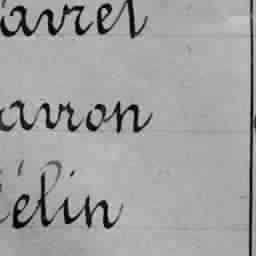 avret
avron
élin